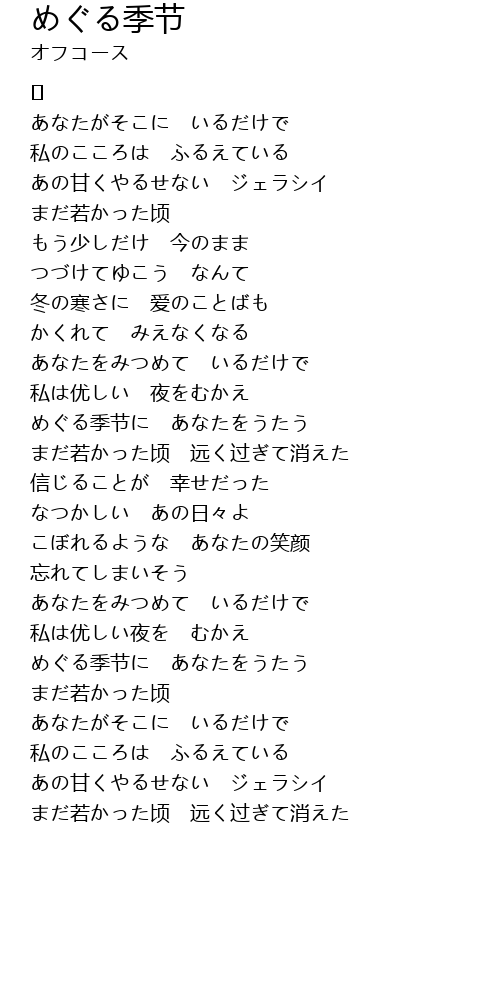 めぐる季节
オフコース
あなたがそこに　いるだけで
私のこころは　ふるえている
あの甘くやるせない　ジェラシイ
まだ若かった顷
もう少しだけ　今のまま
つづけてゆこう　なんて
冬の寒さに　爱のことばも
かくれて　みえなくなる
あなたをみつめて　いるだけで
私は优しい　夜をむかえ
めぐる季节に　あなたをうたう
まだ若かった顷　远く过ぎて消えた
信じることが　幸せだった
なつかしい　あの日々よ
こぼれるような　あなたの笑颜
忘れてしまいそう
あなたをみつめて　いるだけで
私は优しい夜を　むかえ
めぐる季节に　あなたをうたう
まだ若かった顷
あなたがそこに　いるだけで
私のこころは　ふるえている
あの甘くやるせない　ジェラシイ
まだ若かった顷　远く过ぎて消えた